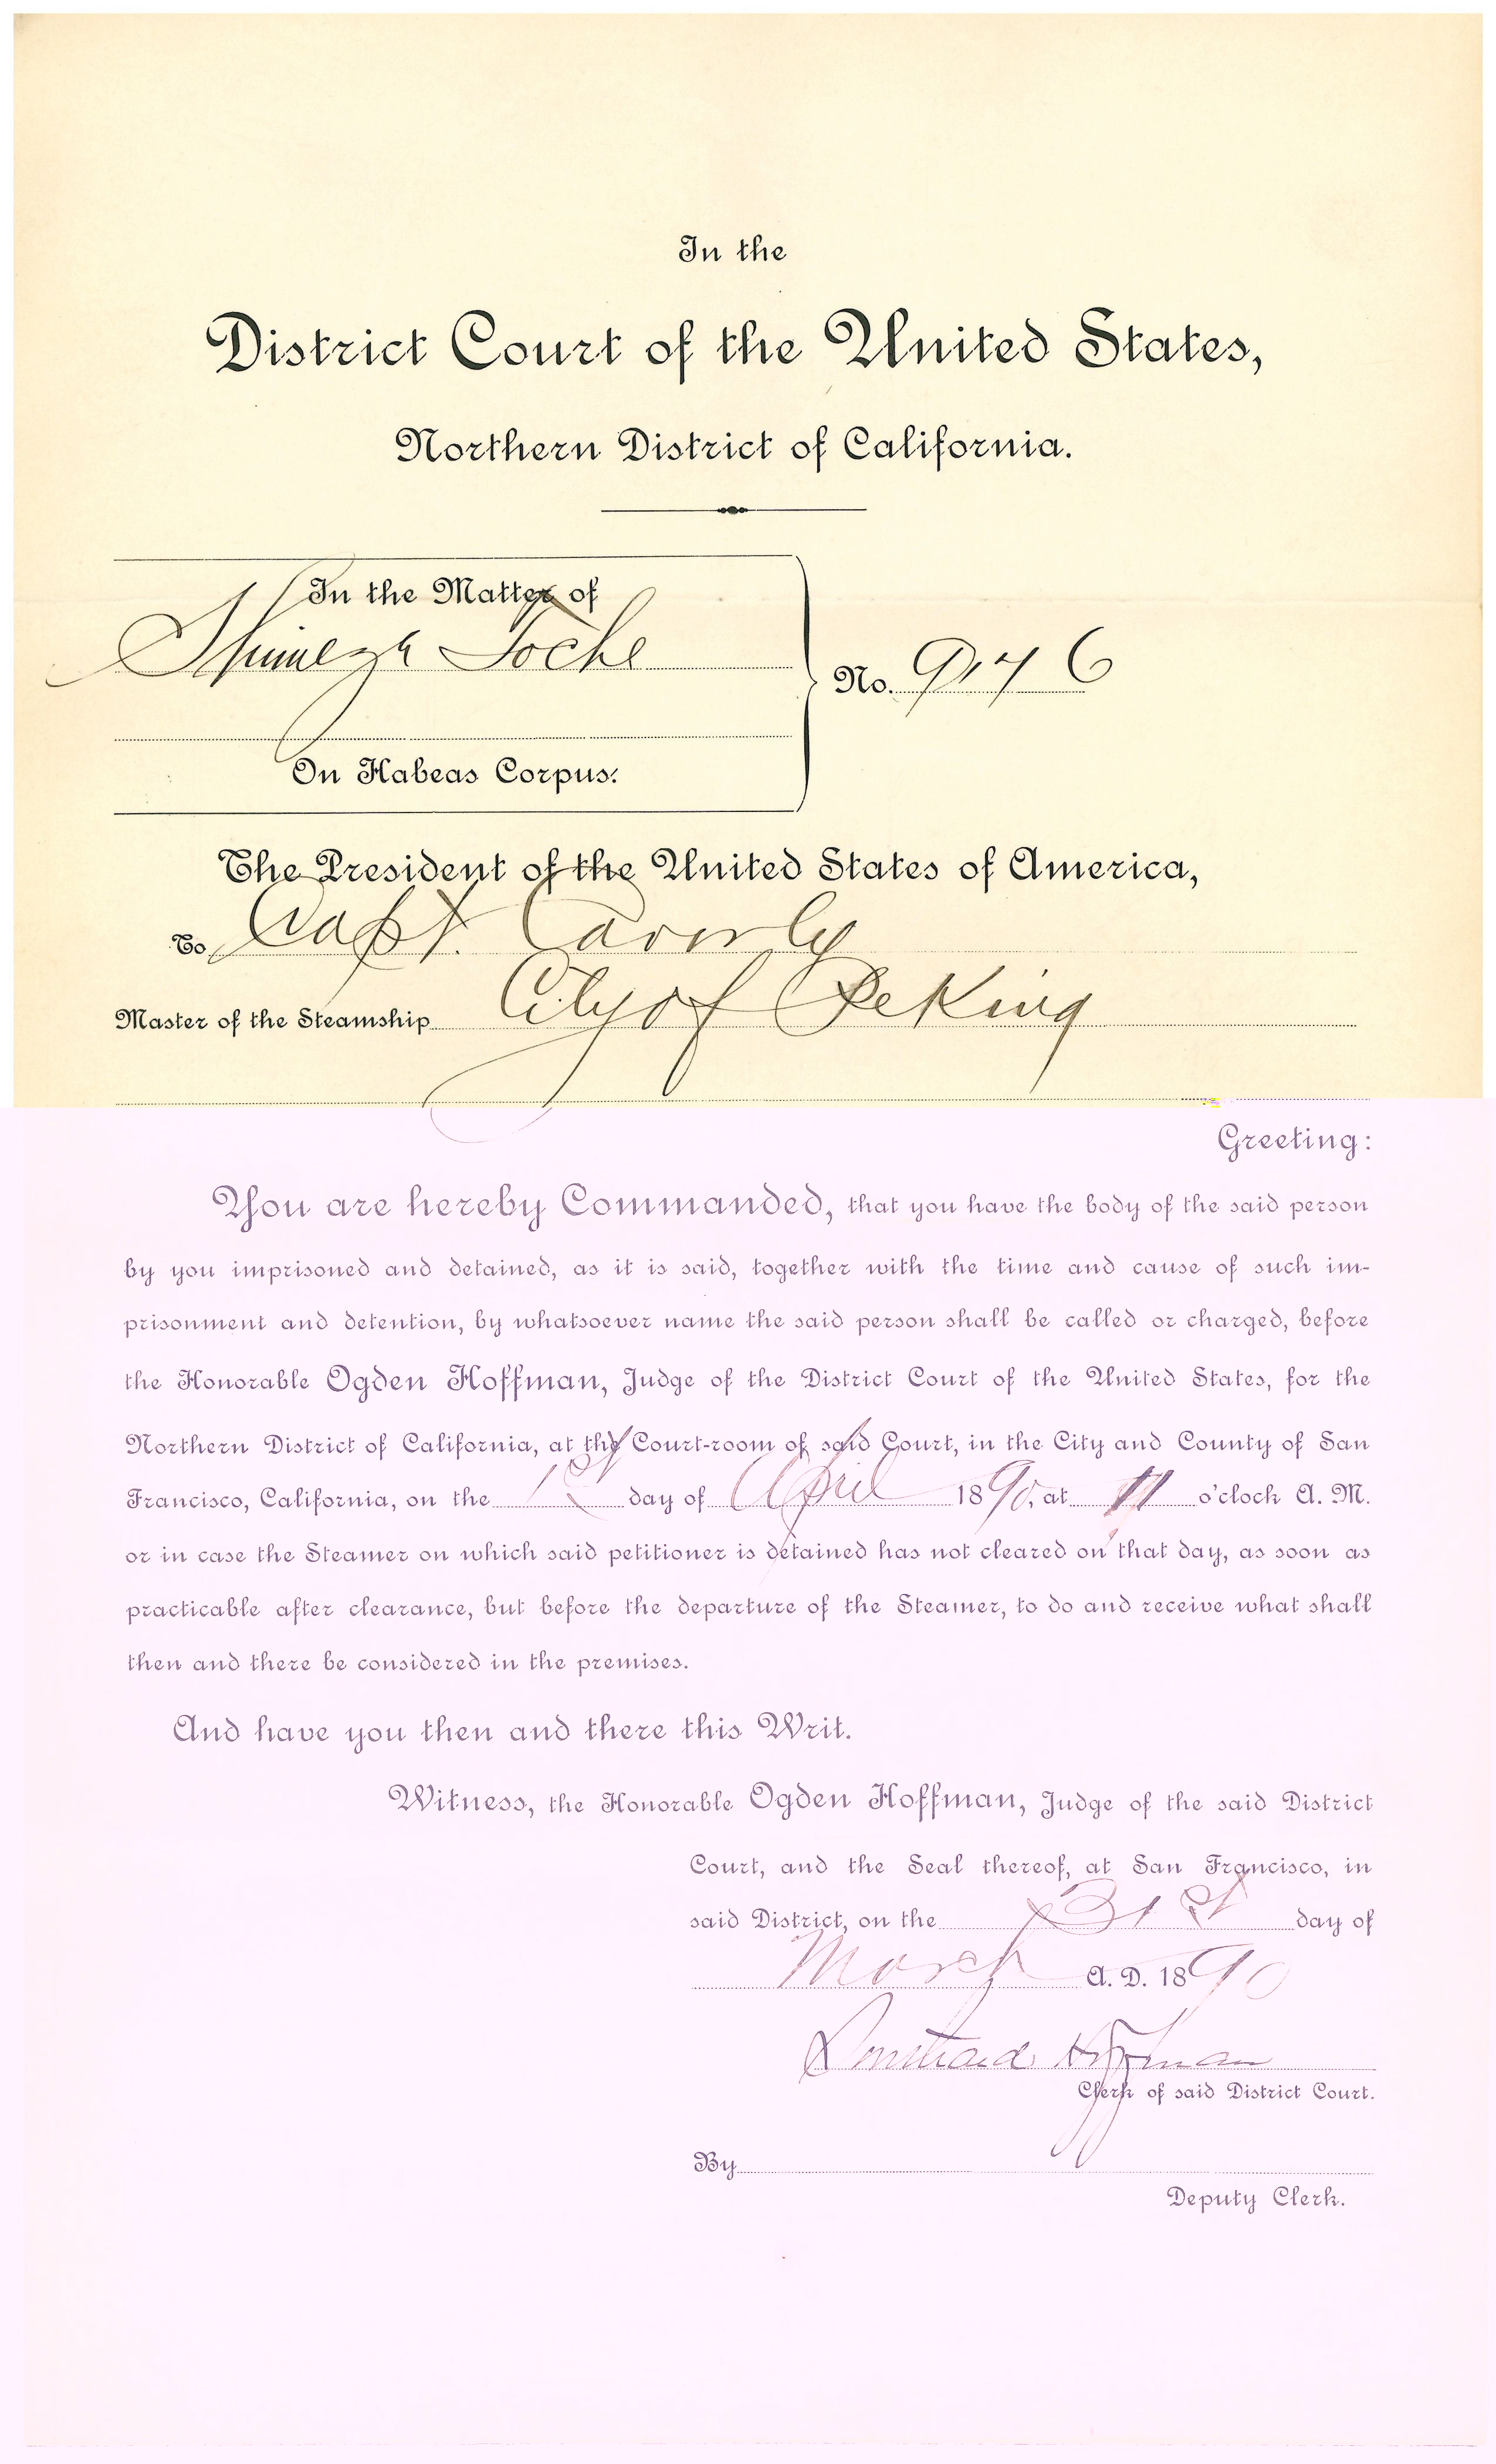 In the
District Court of the United States,
Northern District of California.
In the Matter of
No. 9176
On Habeas Corpus.
The President of the United States of America,
To Capt. Cavorly
Master of the Steamship City of Peking
Greeting:
You are hereby Commanded, that you have the body of the said person
by you imprisoned and detained, as it is said, together with the time and cause of such im-
prisonment and detention, by whatsoever name the said person shall be called or charged, before
the Honorable Ogden Hoffman, Judge of the District Court of the United States, for the
Northern District of California, at the Court-room of said Court, in the City and County of San
Francisco, California, on the 1st day of April 1890, at 11 o'clock A. M.
or in case the Steamer on which said petitioner is detained has not cleared on that day, as soon as
practicable after clearance, but before the departure of the Steamer, to do and receive what shall
then and there be considered in the premises.
And have you then and there this Writ.
Witness, the Honorable Ogden Hoffman, Judge of the said District
Court, and the Seal thereof, at San Francisco, in
said District, on the 31st day of
March A. D. 1890
Southard Hoffman
Clerk of said District Court.
By
Deputy Clerk.